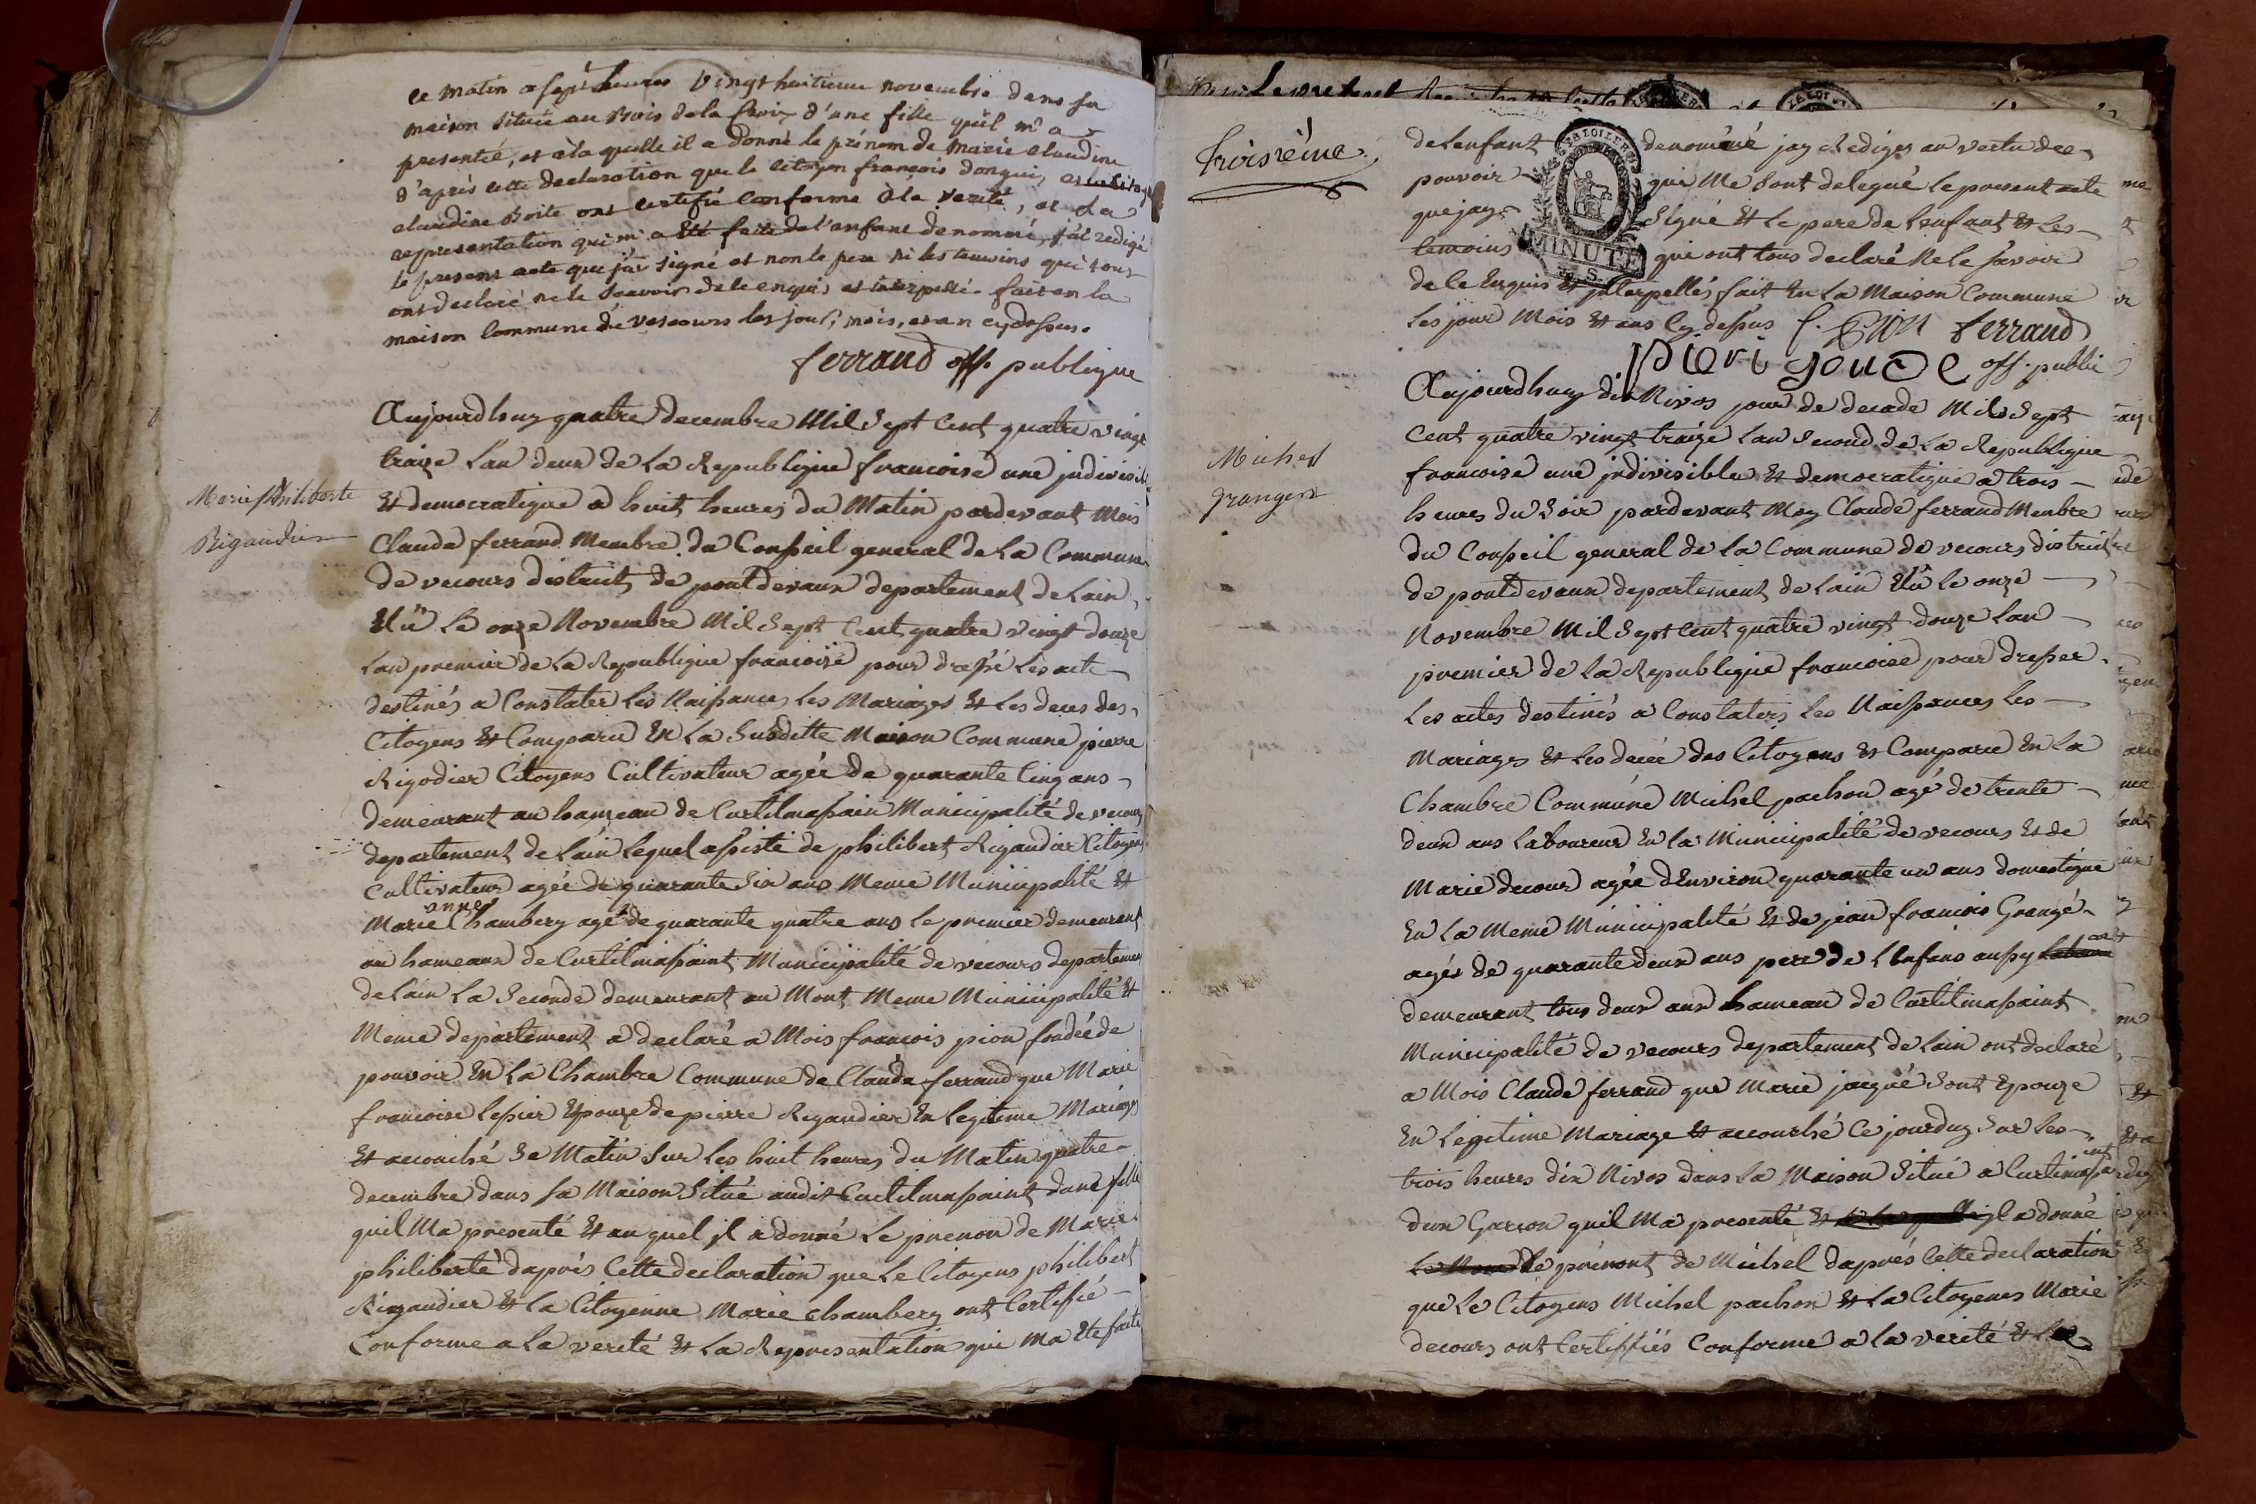 ce matin a sept heures vingt huitieme novembre dans sa
maison située au Bois dela Croix d'une fille qu'il m'a
presentée, et a la quelle il a donné le prénom de marie claudine
d'après cette declaration que le citoyen françois donguis
claudine Boite ont certifié conforme à la verité, et la
representation qui m'a été faite de l'enfant denommé, j'ai redigé
le present acte que j'ai signé et non le pere ni les temoins qui tous
ont declaré ne le scavoir de ce enquis et interpellé. fait en la
maison commune de vescours les jour, mois, et an cy dessus.
ferrand off. publique
Marie philiberte
Rigaudier
Aujourdhuy quatre decembre Mil Sept Cent quatre vingt
traize Lan deux de La Republique francoise une jndivisi
Et democratique a huit heures du Matin pardevant Mois
Claude ferrand Membre du Conseil general de La Commune
de vecours district de pontdevaux departement de Lain
Elû Le onze Novembre Mil Sept Cent quatre vingt douze
Lan premier de La Republique francoise pour dressé Les acte
destinés a Constater Les Naissances Les Mariages Et Les deces des
Citoyens Et Comparu En La Susditte Maison Commune pierre
Rigodier Citoyens Cultivateur agée de quarante Cinq ans
demeurant au hameau de Curtilmassain Municipalité de vecours
departement de Lain Lequel assisté de philibert Rigaudier Citoyens
Cultivateur agée de quarante Six ans Meme Municipalité Et
anne
Marie Chambery agé de quarante quatre ans Le premier demeurant
au hameaux de Curtilmassaint Municipalité de vecours departemen
de Lain La Seconde demeurant au Mont Meme Municipalité Et
Meme departement a declaré a Mois francois pion fondée de
pouvoir En La Chambre Commune de Claude ferrand que Marie
francoise Lessier Epouze de pierre Rigaudier En Legitime Mariage
Et accouché Se Matin Sur Les huit heures du Matin quatre
decembre dans sa Maison Situé audit Curtilmassaint dune fille
quil Ma presenté Et au quel jl a donné Le prenon de Marie
philiberte dapres Cette declaration que Le Citoyens philibert
Rigaudier Et La Citoyenne Marie Chambery ont Certifié
Conforme a La verité Et La Representation qui Ma Ete faite
troisieme
de Lenfant denoméné jay Rediger au vertu des
pouvoir qui Me Sont delegué Le present acte
que jay Signé Et Le pere de Lenfant Et Les
temoins qui ont tous declaré Ne Le Savoir
de Ce Enquis Et jnterpellés fait En La Maison Commune
Les jour Mois Et ans Cy dessus f. Pion ferrand
pieri gouge off. public
MINUTE
Michel
Granger
Aujourdhuy dix Nivos jour de decade Mil Sept
Cent quatre vingt traize Lan Second de La Republique
francoise une jndivisible Et democratique a trois
heures du Soir pardevant Moy Claude ferrand Membre
du Conseil general de La Commune de vecours district
de pontdevaux departement de Lain Elû Le onze
Novembre Mil Sept Cent quatre vingt douze Lan
premier de La Republique francoise pour dresser
Les actes destinés a Constaters Les Naissances Les
Mariages Et Les decée des Citoyens Et Comparu En La
Chambre Commune Michel pachon agé de trente
deux ans Laboureur En La Municipalité de vecours Et de
Marie decour agée dEnviron quarante un ans domestique
En La Meme Municipalité Et de jean francois Grangé
agés de quarante deux ans pere de LEnfans aussy
demeurant tous deux aux hameau de Curtilmassaint
Municipalité de vecours departement de Lain ont declaré
a Mois Claude ferrand que Marie jacqué Sont Epouze
En Legitime Mariage Et accouché Ce jourduy Sur Les
trois heures dix Nivos dans La Maison Situé a Curtimassaint
dun Garcon quil Ma presenté Et a La quelle jl a donné
Le Nom de Le prenont de Michel dapres Cette declaration
que Le Citoyens Michel pachon Et La Citoyenes Marie
decours ont Certiffiés Conforme a La verité Et La